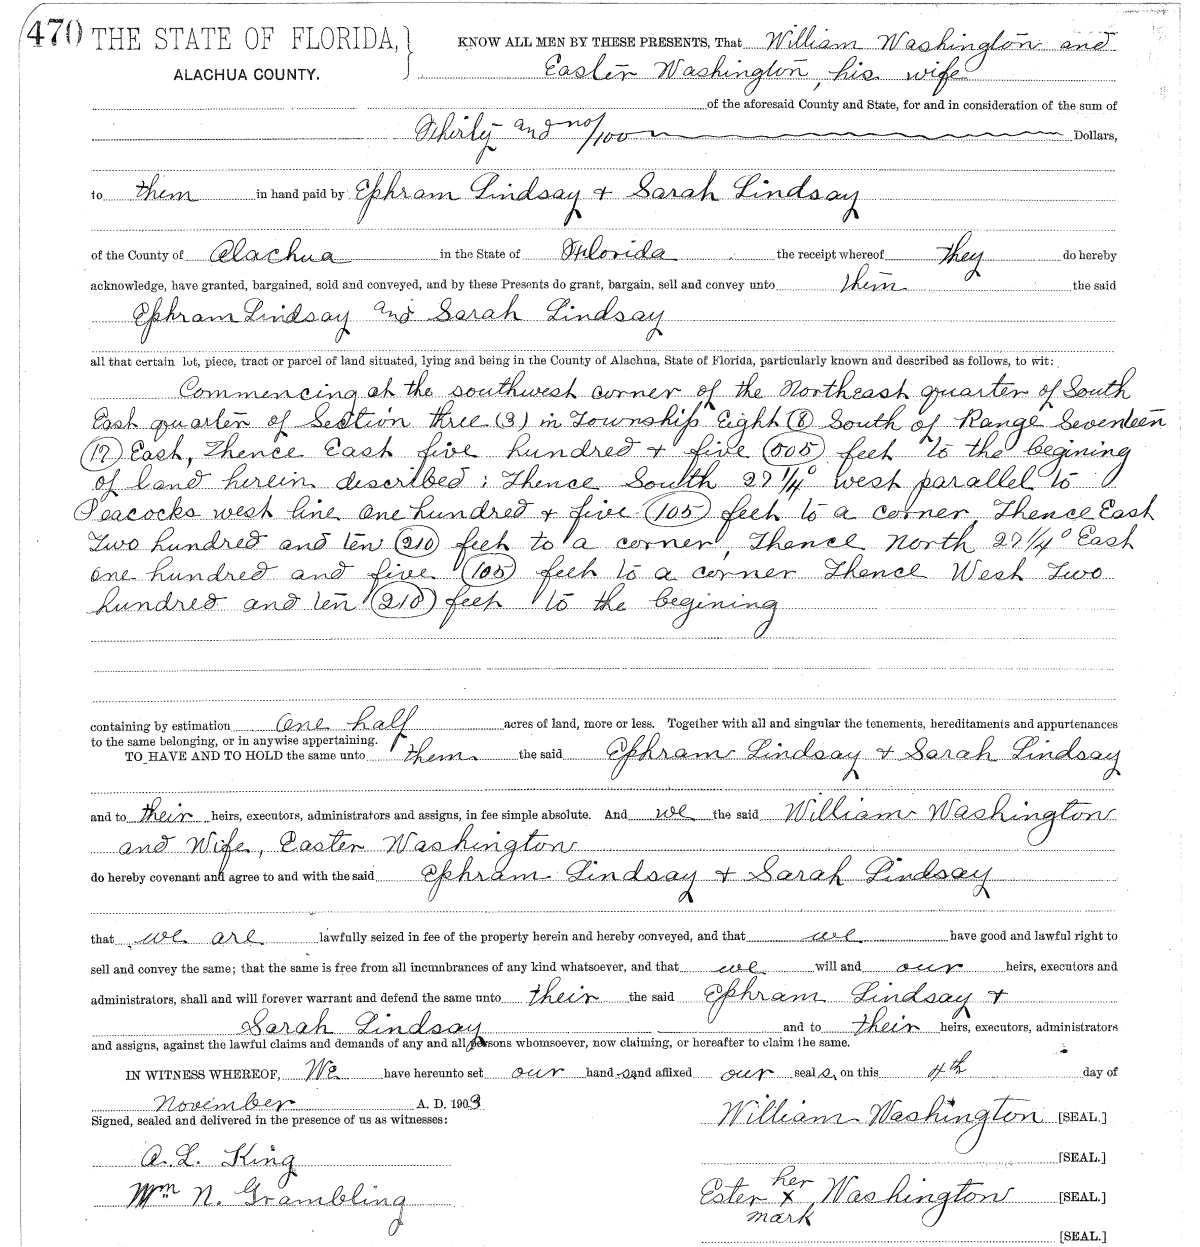 470 THE STATE OF FLORIDA, } KNOW ALL MEN BY THESE PRESENTS, That William Washington and
ALACHUA COUNTY. Easter Washington, his wife
of the aforesaid County and State, for and in consideration of the sum of
Thirty and no/100 Dollars,
to them in hand paid by Ephram Lindsay + Sarah Lindsay
of the County of Alachua in the State of Florida the receipt whereof they do hereby
acknowledge, have granted, bargained, sold and conveyed, and by these Presents do grant, bargain, sell and convey unto them the said
Ephram Lindsay and Sarah Lindsay
all that certain lot, piece, tract or parcel of land situated, lying and being in the County of Alachua, State of Florida, particularly known and described as follows, to wit:
Commencing at the southwest corner of the Northeast quarter of South
East quarter of Section three (3) in Township Eight (8) South of Range Seventeen
(17) East, Thence East five hundred + five (505) feet to the begining
of land herein described; Thence South 27 1/4° west parallel to
Peacocks west line one hundred + five (105) feet to a corner, Thence East
Two hundred and ten (210) feet to a corner, Thence North 27 1/4° East
one hundred and five (105) feet to a corner Thence West Two
hundred and ten (210) feet to the begining
containing by estimation One half acres of land, more or less. Together with all and singular the tenements, hereditaments and appurtenances
to the same belonging, or in anywise appertaining.
TO HAVE AND TO HOLD the same unto them the said Ephram Lindsay + Sarah Lindsay
and to their heirs, executors, administrators and assigns, in fee simple absolute. And we the said William Washington
and Wife, Easter Washington
do hereby covenant and agree to and with the said Ephram Lindsay + Sarah Lindsay
that we are lawfully seized in fee of the property herein and hereby conveyed, and that we have good and lawful right to
sell and convey the same; that the same is free from all incumbrances of any kind whatsoever, and that we will and our heirs, executors and
administrators, shall and will forever warrant and defend the same unto their the said Ephram Lindsay +
Sarah Lindsay and to their heirs, executors, administrators
and assigns, against the lawful claims and demands of any and all persons whomsoever, now claiming, or hereafter to claim the same.
IN WITNESS WHEREOF, We have hereunto set our hand s and affixed our seal s, on this 4th day of
November A. D. 1903 William Washington [SEAL.]
Signed, sealed and delivered in the presence of us as witnesses:
A. L. King [SEAL.]
Wm N. Grambling Ester her x mark Washington [SEAL.]
[SEAL.]